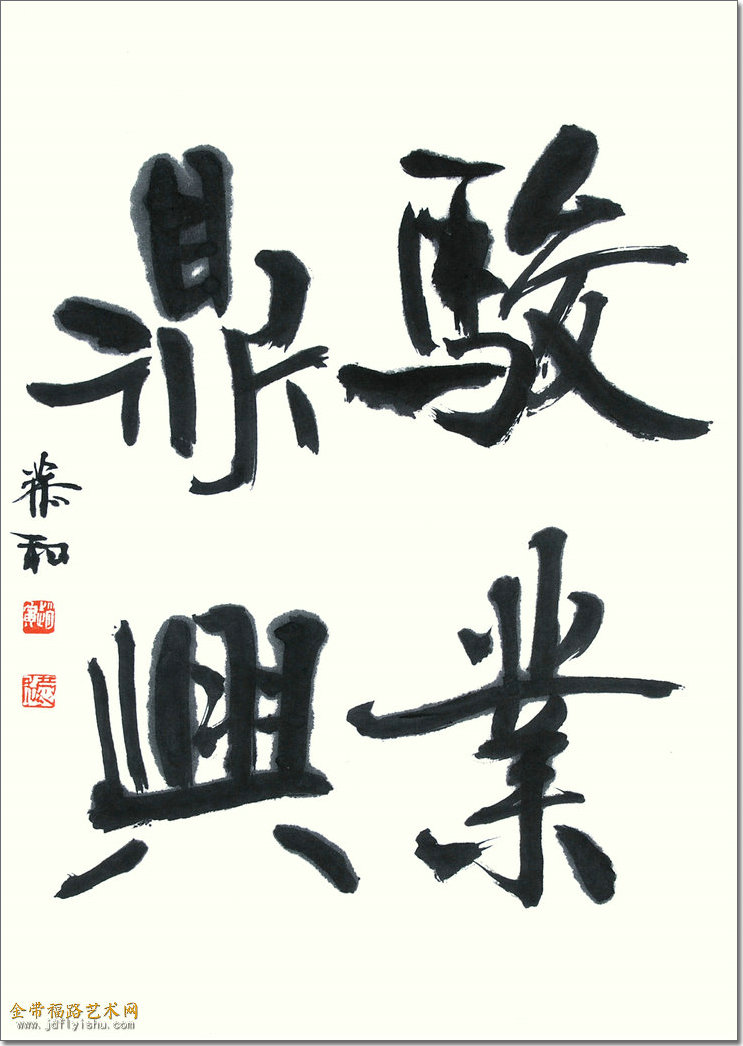 駿業
鼎興
金带福路艺术网
www.jdflyishu.com